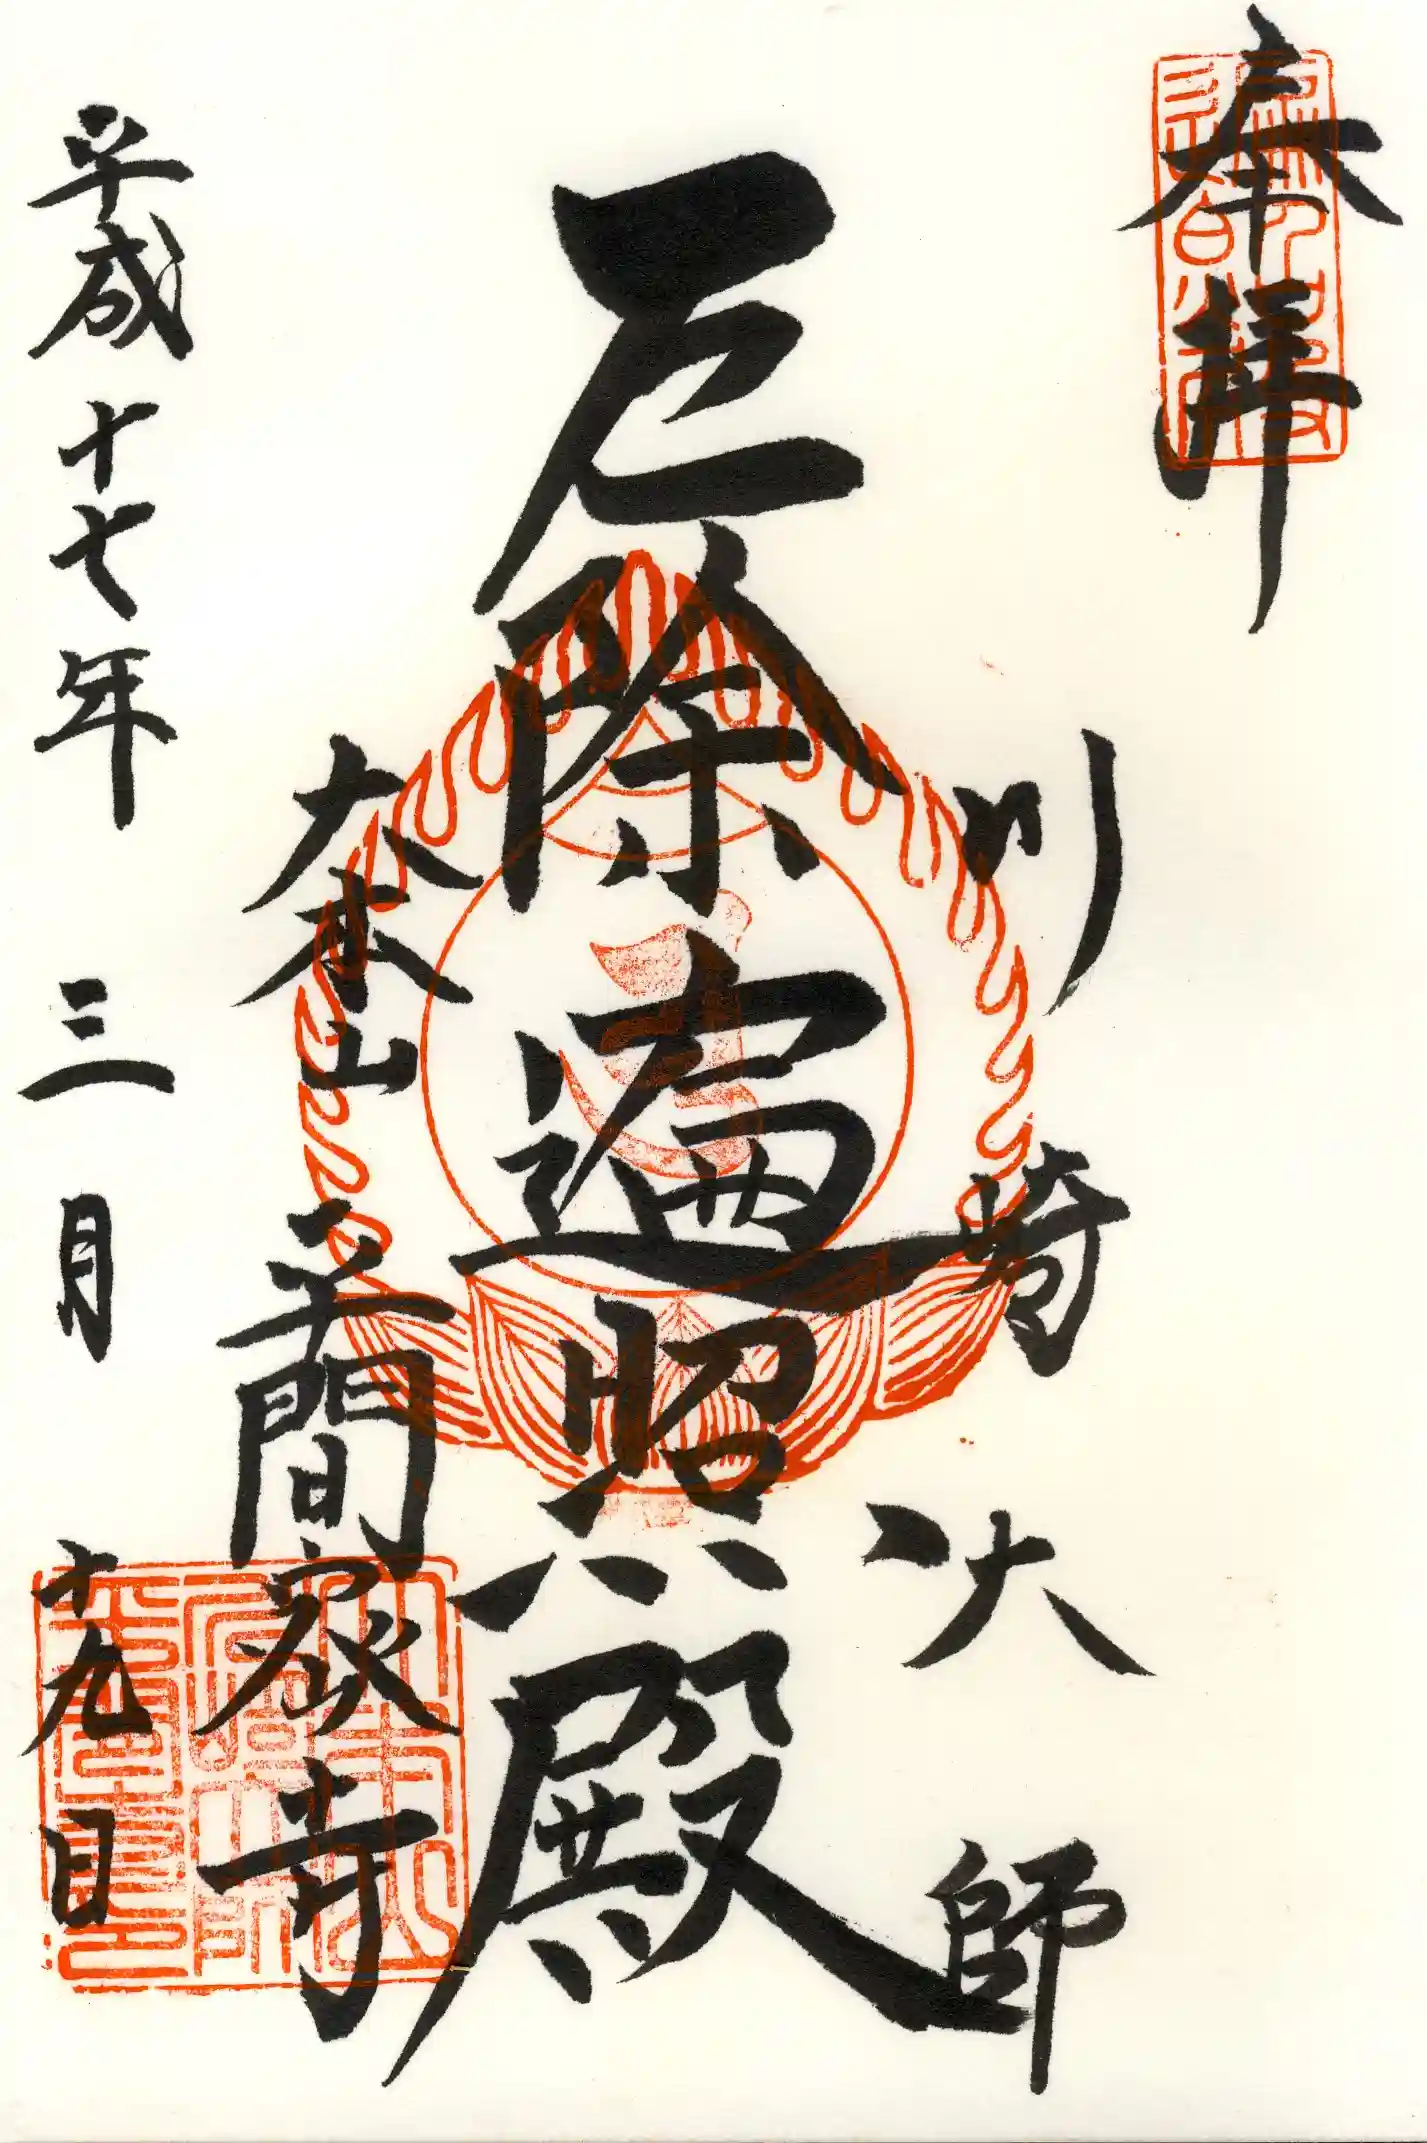 奉拝
川崎大師
厄除遍照殿
大本山
平間密寺
平成十七年三月十九日